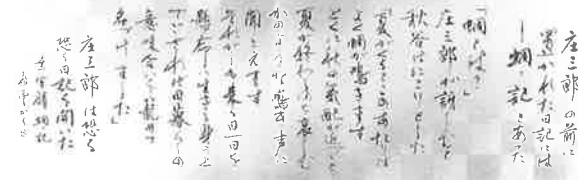 庄三郎の前に
置かれた日記には
―蜩ノ記 とあった
「蜩とは」
庄三郎が訝しむと
秋谷はにこりとした
「夏がくるとこのあたりは
よく蜩が鳴きます
とくに秋の気配が近づくと
夏が終わるのを哀しむ
かのような鳴き声に
聞こえます
それがしも来る日一日を
懸命に生きる身の上
でござれば日暮らしの
意味合いを籠めて
名づけました」
庄三郎は恐る
恐る日記を開いた
葉室麟 蜩ノ記